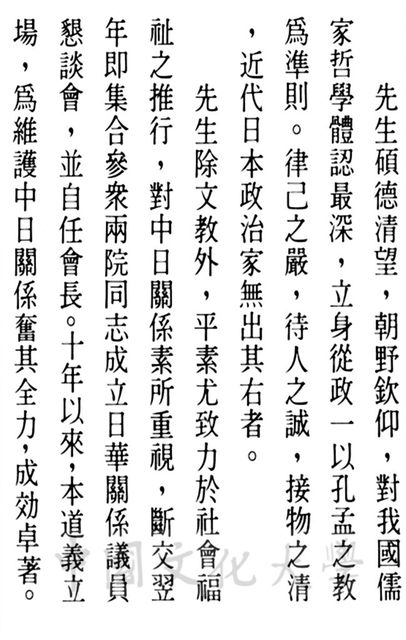 先生碩德清望，朝野欽仰，對我國儒
家哲學體認最深，立身從政一以孔孟之教
爲準則。律己之嚴，待人之誠，接物之清
，近代日本政治家無出其右者。
先生除文教外，平素尤致力於社會福
祉之推行，對中日關係素所重視，斷交翌
年即集合參衆兩院同志成立日華關係議員
懇談會，並自任會長。十年以來，本道義立
場，爲維護中日關係奮其全力，成効卓著。
中國文化大學